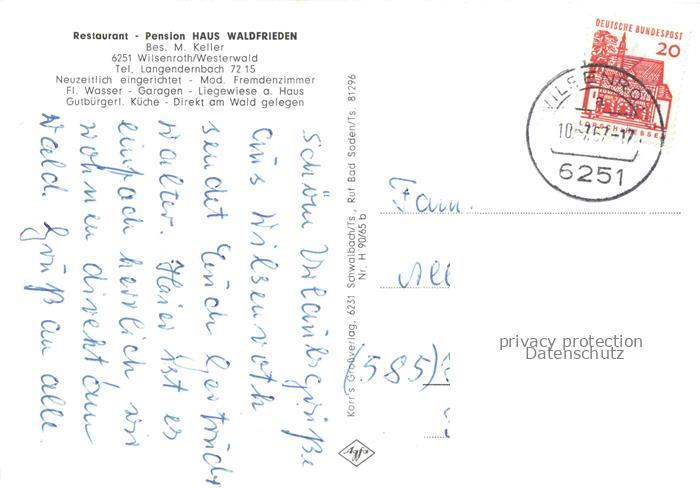 Restaurant - Pension HAUS WALDFRIEDEN
Bes. M. Keller
6251 Wilsenroth/Westerwald
Tel. Langendernbach 72 15
Neuzeitlich eingerichtet - Mod. Fremdenzimmer
Fl. Wasser - Garagen - Liegewiese a. Haus
Gutbürgerl. Küche - Direkt am Wald gelegen
Schöne Urlaubsgrüße
aus Wilsenroth
sendet Euch Gertrud
Walter. Hier ist es
einfach herrlich wir
wohnen direkt am
Wald. Gruß an alle.
Korr's Großverlag, 6231 Schwalbach/Ts., Ruf Bad Soden/Ts. 81296
Nr. H 90/65 b
DEUTSCHE BUNDESPOST
20
LORSCH/HESSEN
WILSENROTH
10.-7.67.-17
6251
Fam.
All
(585)
privacy protection
Datenschutz